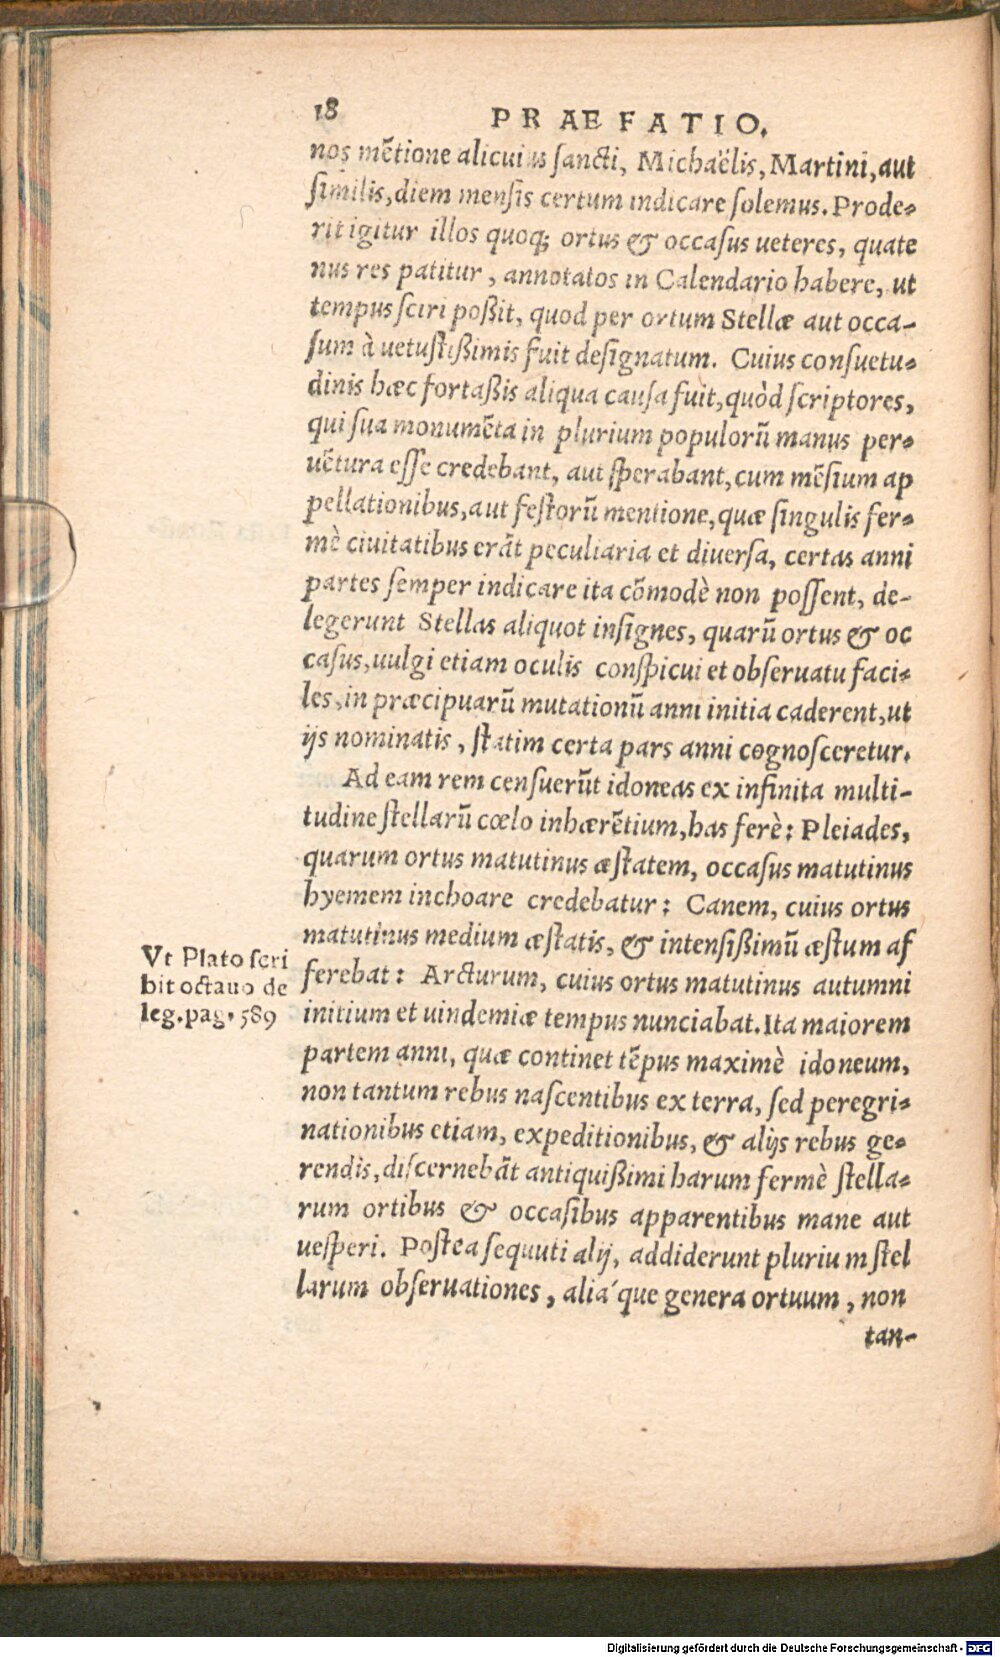 18
PRAEFATIO.
nos mētione alicuius sancti, Michaëlis, Martini, aut
similis, diem mensis certum indicare solemus. Prode-
rit igitur illos quoq; ortus & occasus ueteres, quate
nus res patitur, annotatos in Calendario habere, ut
tempus sciri poßit, quod per ortum Stellæ aut occa-
sum à uetustißimis fuit designatum. Cuius consuetu-
dinis hæc fortaßis aliqua causa fuit, quòd scriptores,
qui sua monumēta in plurium populorū manus per-
uētura esse credebant, aut sperabant, cum mēsium ap
pellationibus, aut festorū mentione, quæ singulis fer-
mè ciuitatibus erāt peculiaria et diuersa, certas anni
partes semper indicare ita cōmodè non possent, de-
legerunt Stellas aliquot insignes, quarū ortus & oc
casus, uulgi etiam oculis conspicui et obseruatu faci-
les, in præcipuarū mutationū anni initia caderent, ut
ijs nominatis, statim certa pars anni cognosceretur.
Ad eam rem censuerūt idoneas ex infinita multi-
tudine stellarū cœlo inhærētium, has ferè: Pleiades,
quarum ortus matutinus æstatem, occasus matutinus
hyemem inchoare credebatur: Canem, cuius ortus
matutinus medium æstatis, & intensißimū æstum af
ferebat: Arcturum, cuius ortus matutinus autumni
initium et uindemiæ tempus nunciabat. Ita maiorem
partem anni, quæ continet tēpus maximè idoneum,
non tantum rebus nascentibus ex terra, sed peregri-
nationibus etiam, expeditionibus, & alijs rebus ge-
rendis, discernebāt antiquißimi harum fermè stella-
rum ortibus & occasibus apparentibus mane aut
uesperi. Postea sequuti alij, addiderunt plurium stel
larum obseruationes, alia´que genera ortuum, non
tan-
Vt Plato scri
bit octauo de
leg. pag. 589
Digitalisierung gefördert durch die Deutsche Forschungsgemeinschaft - DFG